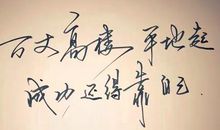 百丈高楼平地起
成功还得靠自己